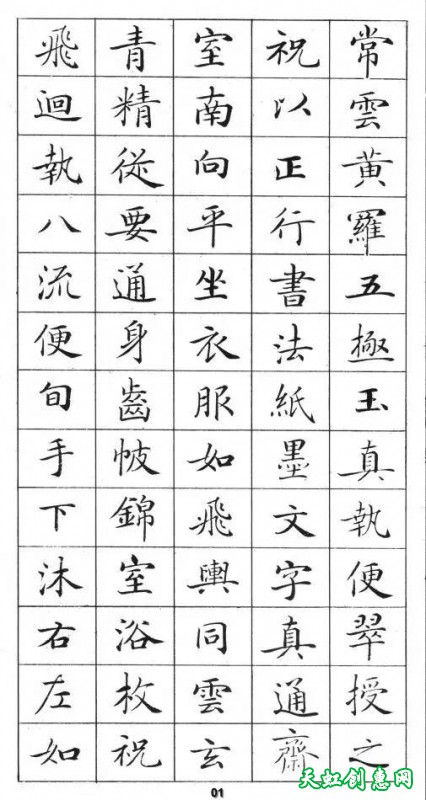 常雲黃羅五極玉真執便翠授之
祝以正行書法紙墨文字真通齋
室南向平坐衣服如飛輿同雲玄
青精從要通身齒帔錦室浴枚祝
飛迴執八流便旬手下沐右左如
01
天虹创意网